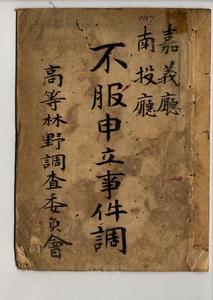 嘉義廳
南投廳
不服申立事件調
高等林野調査委員會